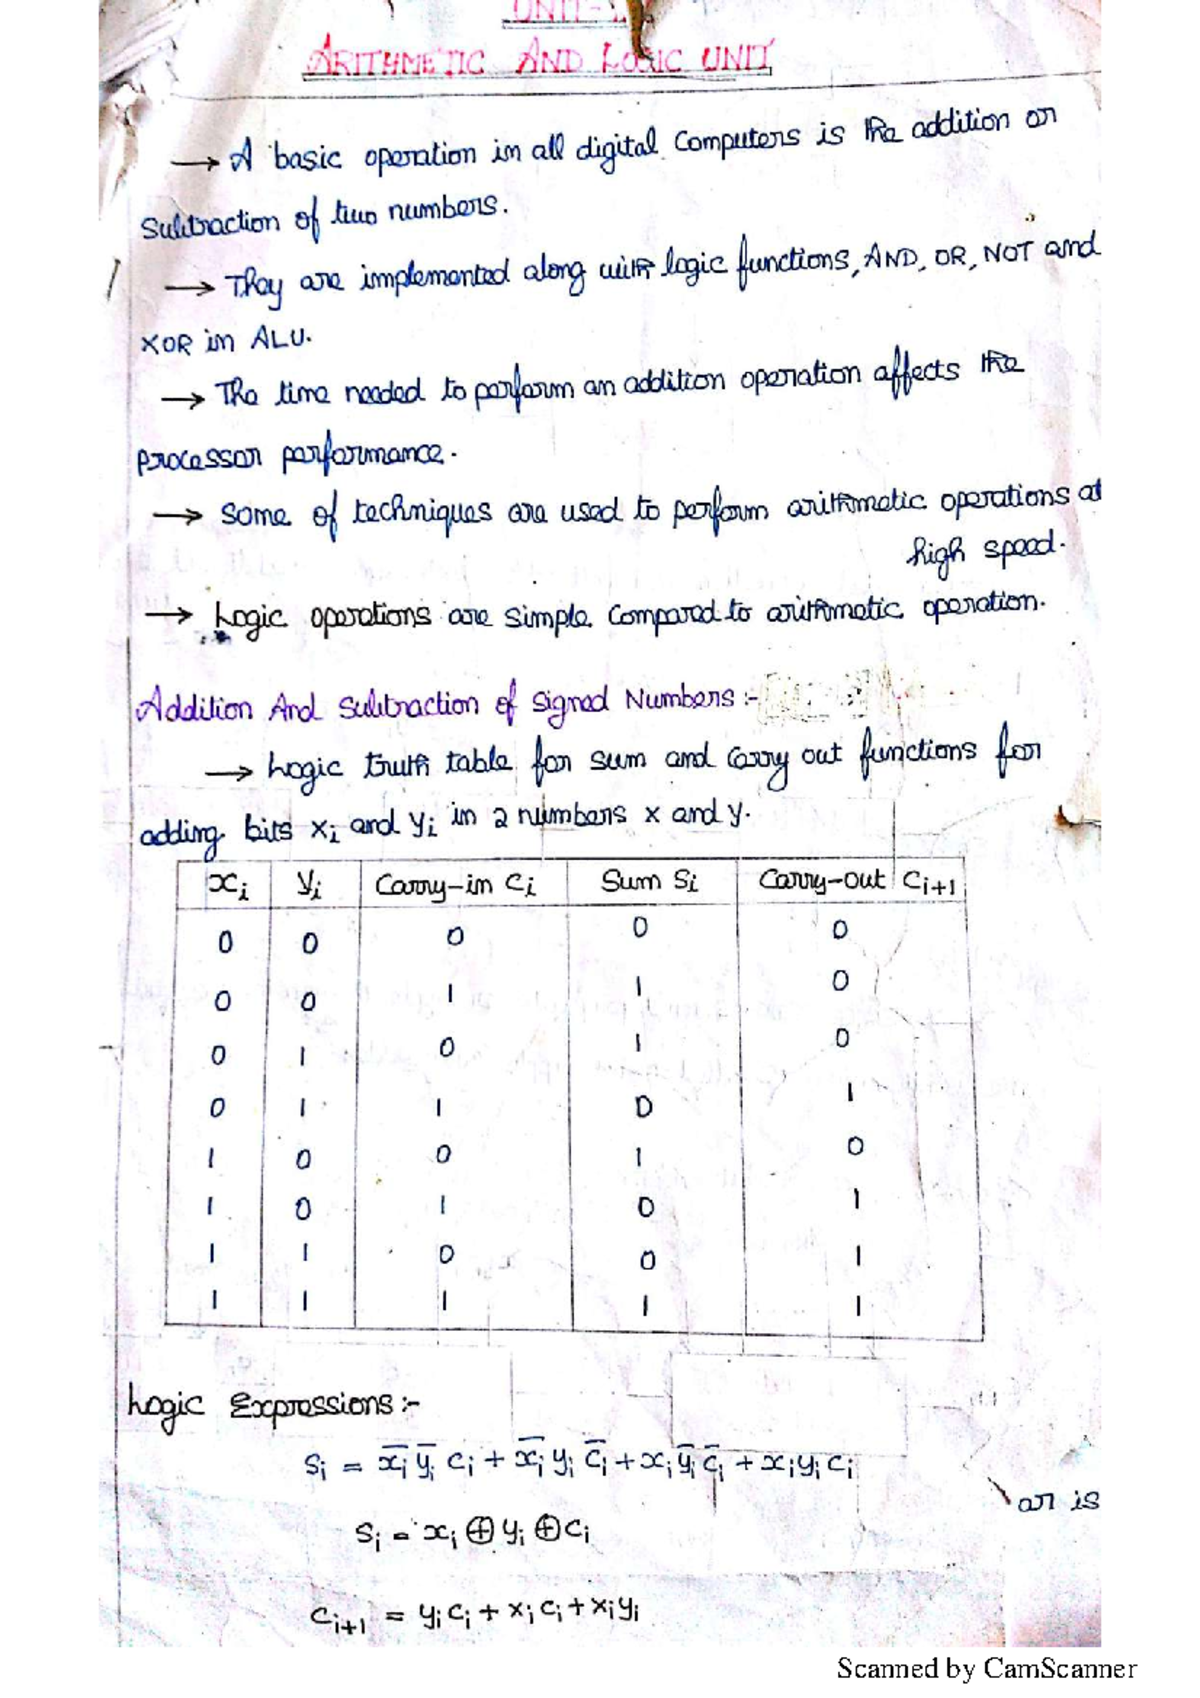 UNIT-
ARITHMETIC AND LOGIC UNIT
→ A basic operation in all digital Computers is the addition or
Subtraction of two numbers.
→ They are implemented along with logic functions, AND, OR, NOT and
XOR in ALU.
→ The time needed to perform an addition operation affects the
processor performance.
→ Some of techniques are used to perform arithmetic operations at
high speed.
→ Logic operations are simple compared to arithmetic operation.
Addition And Subtraction of Signed Numbers :-
→ Logic truth table for sum and carry out functions for
adding bits xi and yi in 2 numbers x and y.
xi yi Carry-in ci Sum Si Carry-out Ci+1
0 0 0 0 0
0 0 1 1 0
0 1 0 1 0
0 1 1 0 1
1 0 0 1 0
1 0 1 0 1
1 1 0 0 1
1 1 1 1 1
Logic Expressions :-
Si = x̄i ȳi ci + x̄i yi c̄i + xi ȳi c̄i + xi yi ci
or is
Si = xi ⊕ yi ⊕ ci
Ci+1 = yi ci + xi ci + xi yi
Scanned by CamScanner